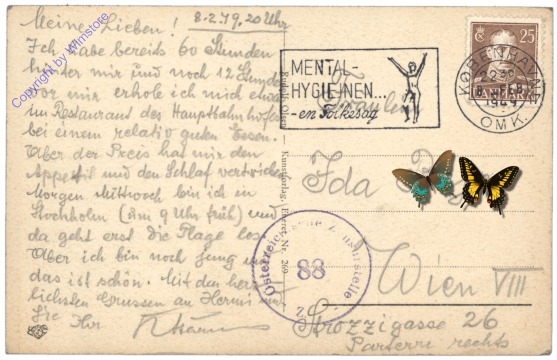 Copyright by Wimstore
Meine Lieben! 8.2.49, 20 Uhr
Ich habe bereits 60 Stunden
hinter mir und noch 12 Stunden
vor mir erhole ich mich etwas
im Restaurant des Hauptbahnhofes
bei einem relativ guten Essen.
Aber der Preis hat mir den
Appetit und den Schlaf vertrieben
Morgen Mittwoch bin ich in
Stockholm (um 9 Uhr früh) und
da geht erst die Plage los.
Aber ich bin noch jung und
das ist schön. Mit den herz-
lichsten Grussen an Hermi und
Sie Ihr
MENTAL-
HYGIEJNEN...
-en Folkesag
25
KØBENHAVN
8. FEB.
1949
OMK.
Fräulein
Ida
Wien VIII
Strozzigasse 26
Parterre rechts
Österreichische Zensurstelle
88
Kunstverlag
Nr. 269